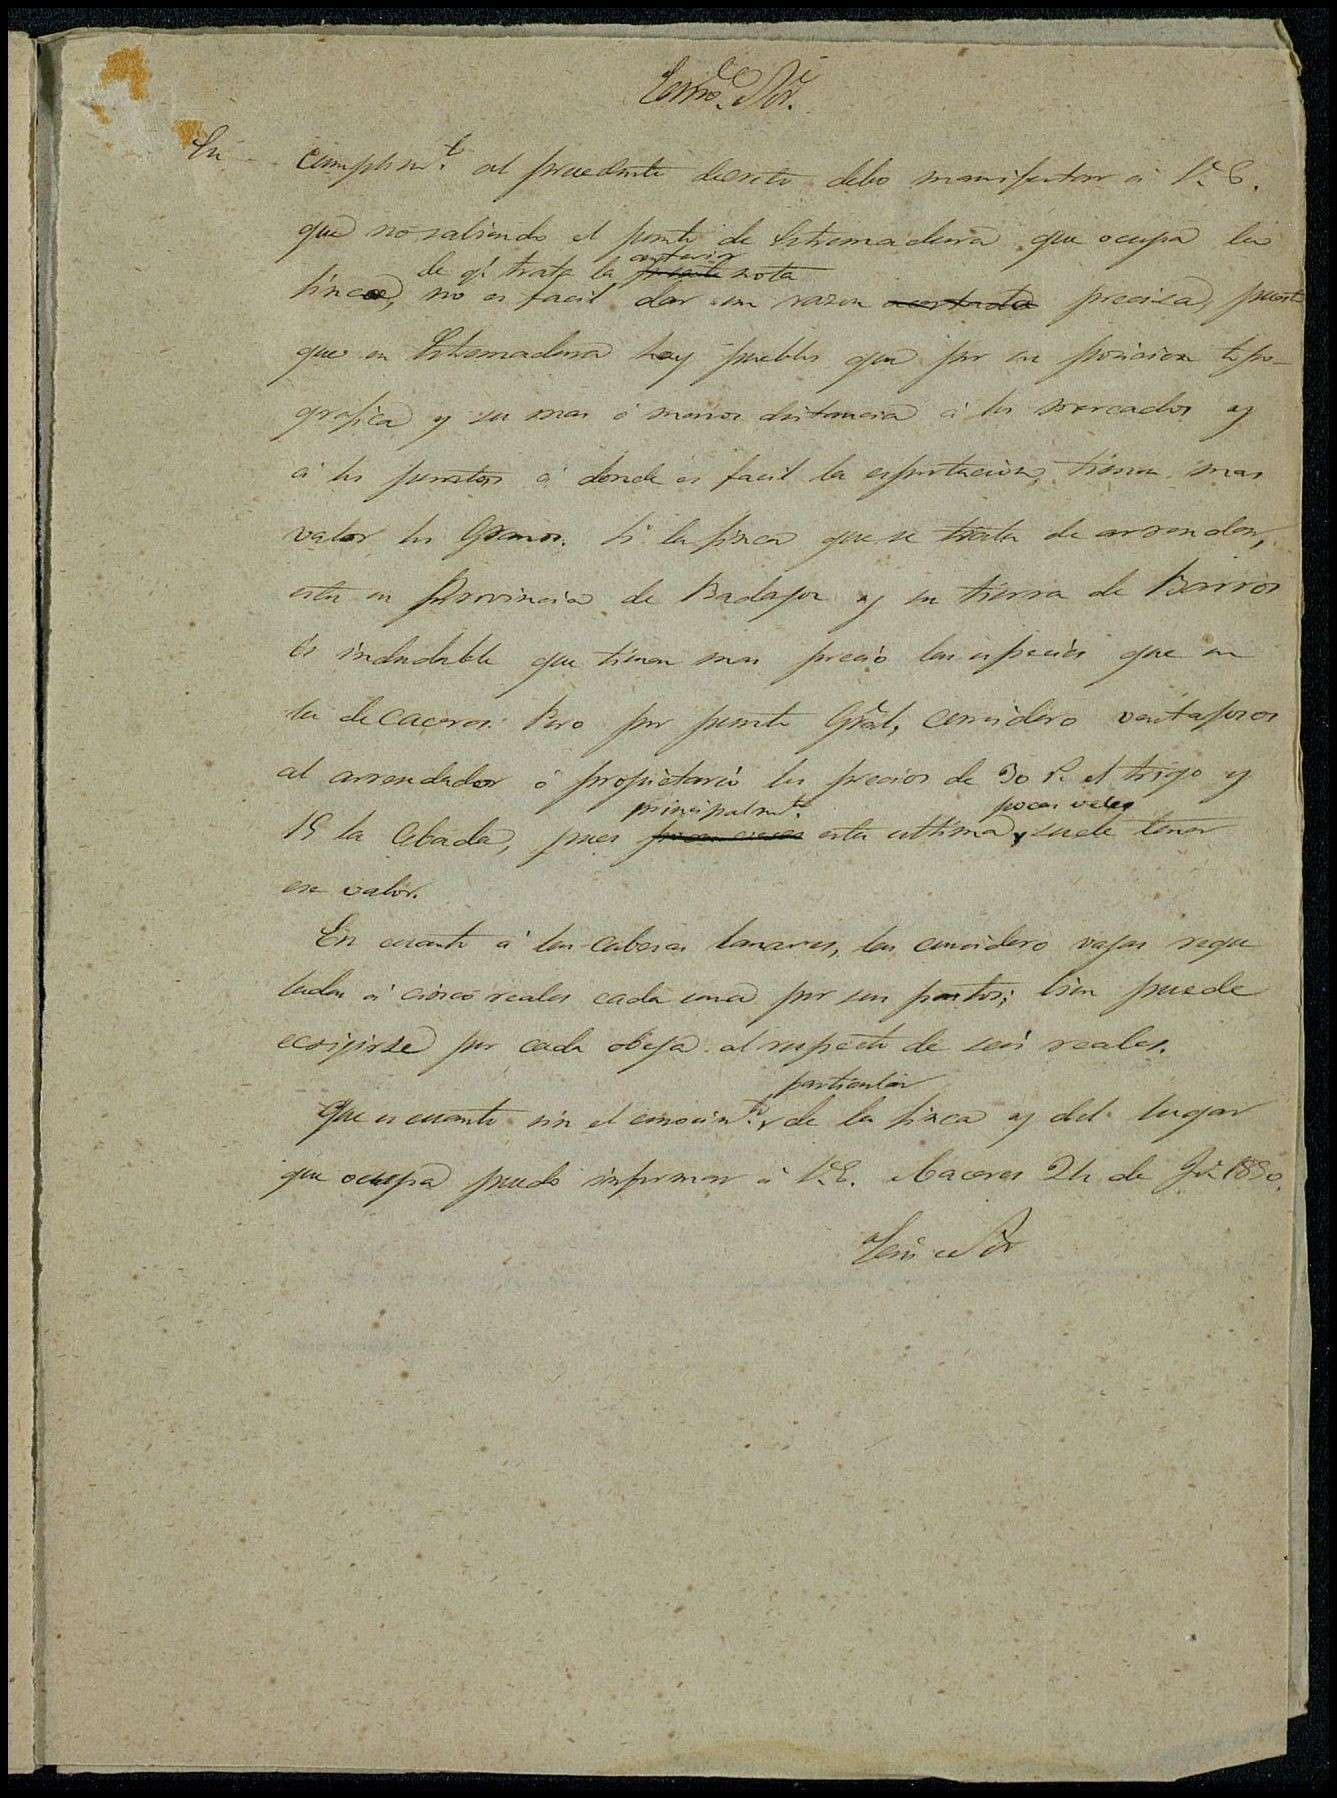 Exmo. Sor.
En cumplimto. al precedente decreto debo manifestar á V. E.
que no sabiendo el punto de Estremadura que ocupa la
de q. trata la anterior nota
finca, no es facil dar una razon precisa, puesto
que en Estremadura hay pueblos que por su posicion topo-
grafica y su mas ó menos distancia á los mercados y
á los puntos á donde es facil la esportacion, tienen mas
valor los Granos. Si la finca que se trata de arrendar,
esta en Provincia de Badajoz y en tierra de Barros
es indudable que tienen mas precio las especies que en
la de Caceres. Pero por punto Gral, considero ventajosos
al arrendador ó propietario los precios de 30 r. el trigo y
principalmte. pocas veces
15 la Cebada, pues esta ultima, suele tener
ese valor.
En cuanto á las cabezas lanares, las considero vajas regu
ladas á cinco reales cada una por sus pastos; bien puede
ecsigirse por cada obeja al respecto de seis reales.
particular
Que es cuanto sin el conocimto. de la finca y del lugar
que ocupa puedo informar á V. E. Caceres 24 de 1850.